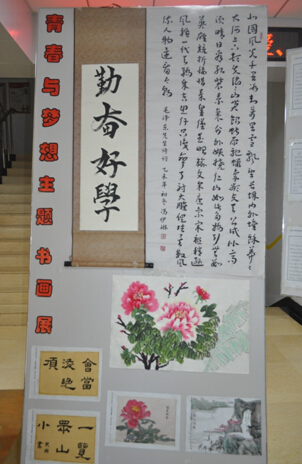 青春与梦想主题书画展
勤奋好學
北国风光千里冰封万里雪飘望长城内外惟馀莽莽
大河上下顿失滔滔山舞银蛇原驰蜡象欲与天公试比高
须晴日看红装素裹分外妖娆江山如此多娇引无数
英雄竞折腰惜秦皇汉武略输文采唐宗宋祖稍逊
风骚一代天骄成吉思汗只识弯弓射大雕俱往矣数风
流人物还看今朝
毛泽东先生诗词 乙未年初冬
會當
凌絕
頂
一覽
眾山
小